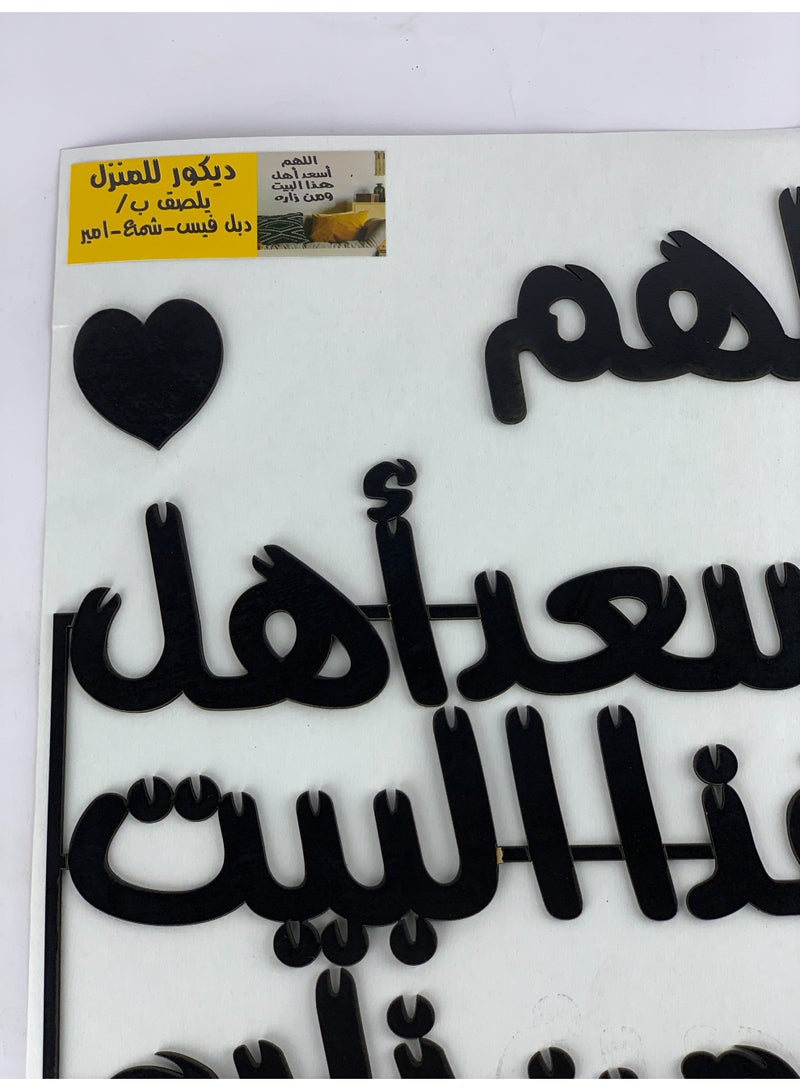 ديكور للمنزل
يلصق ب/
دبل فيس-شمع-امير
اللهم
أسعد أهل
هذا البيت
ومن زاره
لهم
سعد أهل
هذا البيت
ومن زاره